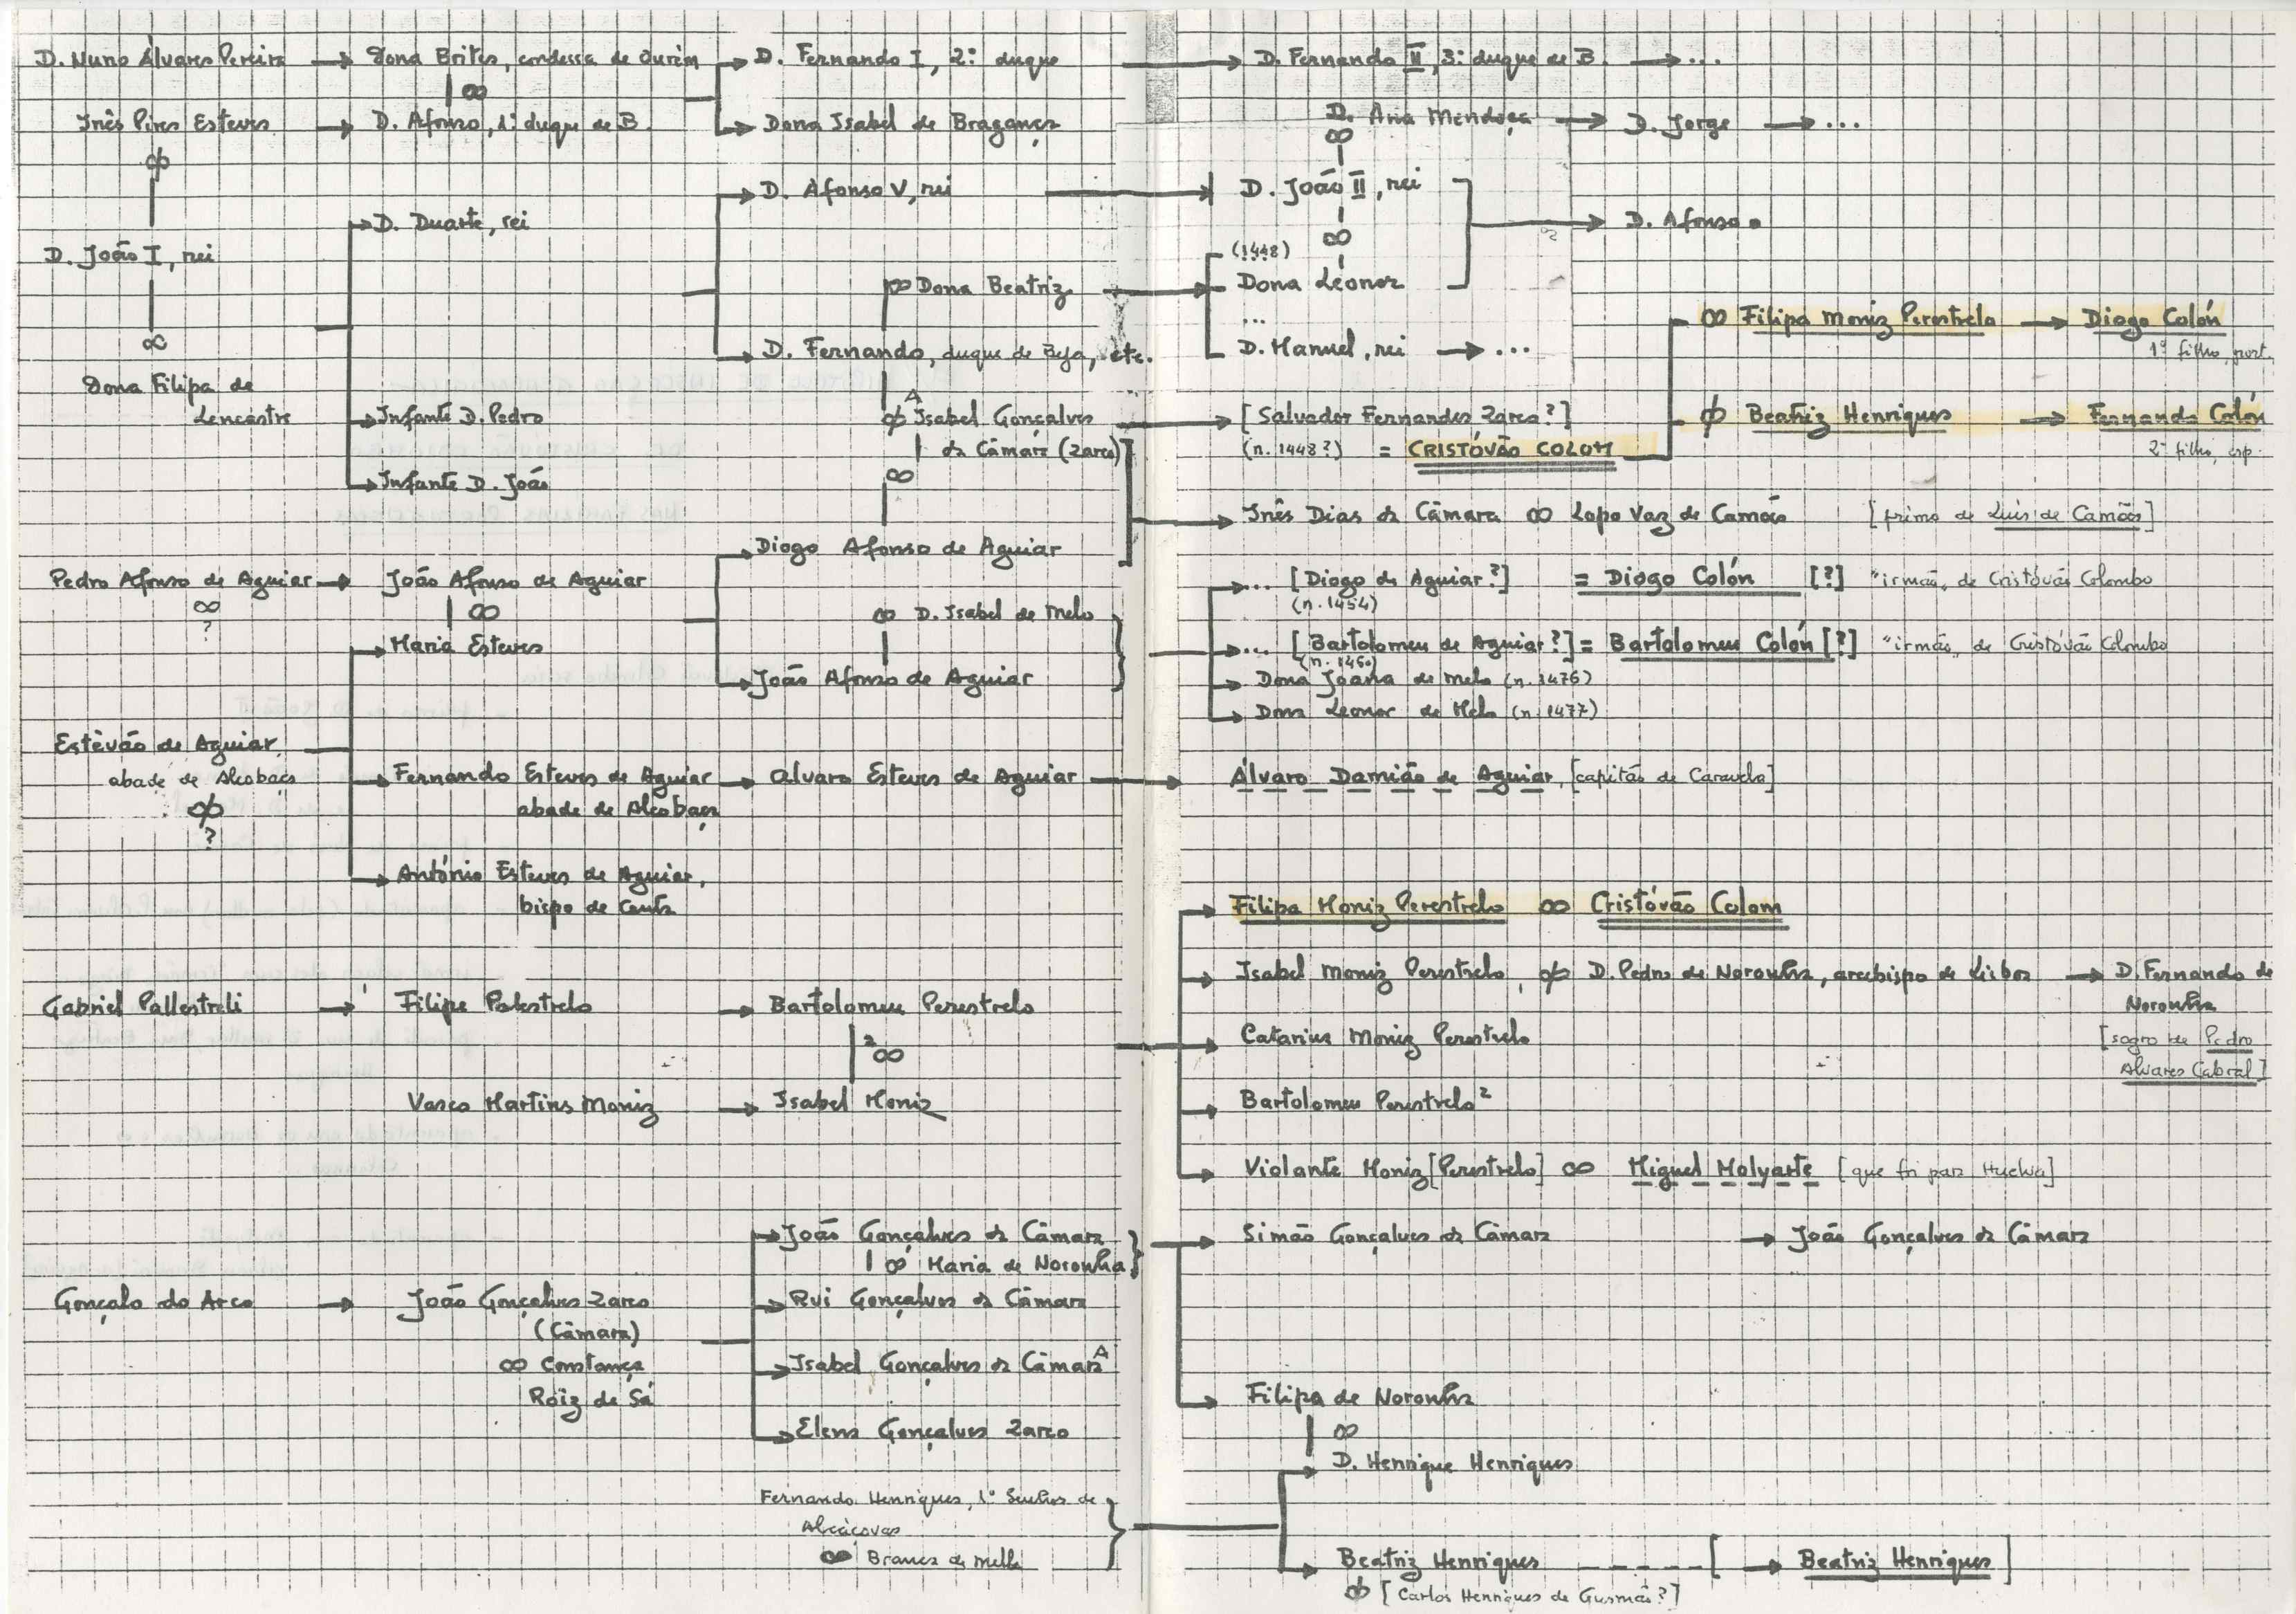 D. Nuno Álvares Pereira → Dona Brites, condessa de Ourém → D. Fernando I, 2º duque → D. Fernando II, 3º duque de B. → ...
∞
D. Ana Mendoça → D. Jorge → ...
Inês Pires Esteves → D. Afonso, 1º duque de B. → Dona Isabel de Bragança
∞
D. Afonso V, rei → D. João II, rei
D. Duarte, rei
D. Afonso
∞
D. João I, rei
(1448)
∞ Dona Beatriz → Dona Leonor
...
∞ Filipa Moniz Perestrelo → Diogo Colón
1º filho, port.
∞
D. Fernando, duque de Beja, etc.
D. Manuel, rei → ...
Dona Filipa de
Lencastre
Infante D. Pedro
A
Isabel Gonçalves → [Salvador Fernandes Zarco?]
Beatriz Henriques → Fernando Colón
da Câmara (Zarco)
(n. 1448?) = CRISTÓVÃO COLOM
2º filho, esp.
Infante D. João
∞
Inês Dias da Câmara ∞ Lopo Vaz de Camões [primo de Luís de Camões]
Diogo Afonso de Aguiar
Pedro Afonso de Aguiar → João Afonso de Aguiar
... [Diogo de Aguiar?] = Diogo Colón [?] "irmão" de Cristóvão Colombo
(n. 1454)
∞
?
∞
∞ D. Isabel de Melo
Maria Esteves
... [Bartolomeu de Aguiar?] = Bartolomeu Colón [?] "irmão" de Cristóvão Colombo
(n. 1460)
João Afonso de Aguiar
Dona Joana de Melo (n. 1476)
Dona Leonor de Melo (n. 1477)
Estêvão de Aguiar,
abade de Alcobaça
?
Fernando Esteves de Aguiar → Alvaro Esteves de Aguiar → Álvaro Damião de Aguiar, [capitão de Caravela]
abade de Alcobaça
António Esteves de Aguiar,
bispo de Ceuta
Filipa Moniz Perestrelo ∞ Cristóvão Colom
Isabel Moniz Perestrelo, D. Pedro de Noronha, arcebispo de Lisboa → D. Fernando de
Noronha
[sogro de Pedro
Alvares Cabral]
Gabriel Pallestreli → Filipe Palestrelo → Bartolomeu Perestrelo
2 ∞
Catarina Moniz Perestrelo
Vasco Martins Moniz → Isabel Moniz
Bartolomeu Perestrelo 2
Violante Moniz [Perestrelo] ∞ Miguel Molyarte [que foi para Huelva]
João Gonçalves da Câmara
∞ Maria de Noronha
Simão Gonçalves da Câmara → João Gonçalves da Câmara
Gonçalo do Arco → João Gonçalves Zarco
(Câmara)
∞ Constança
Roiz de Sá
Rui Gonçalves da Câmara
Isabel Gonçalves da Câmara A
Elena Gonçalves Zarco
Filipa de Noronha
∞
D. Henrique Henriques
Fernando Henriques, 1º Senhor de
Alcáçovas
∞ Branca de Mello
Beatriz Henriques - - - - [ → Beatriz Henriques ]
[Carlos Henriques de Gusmão?]